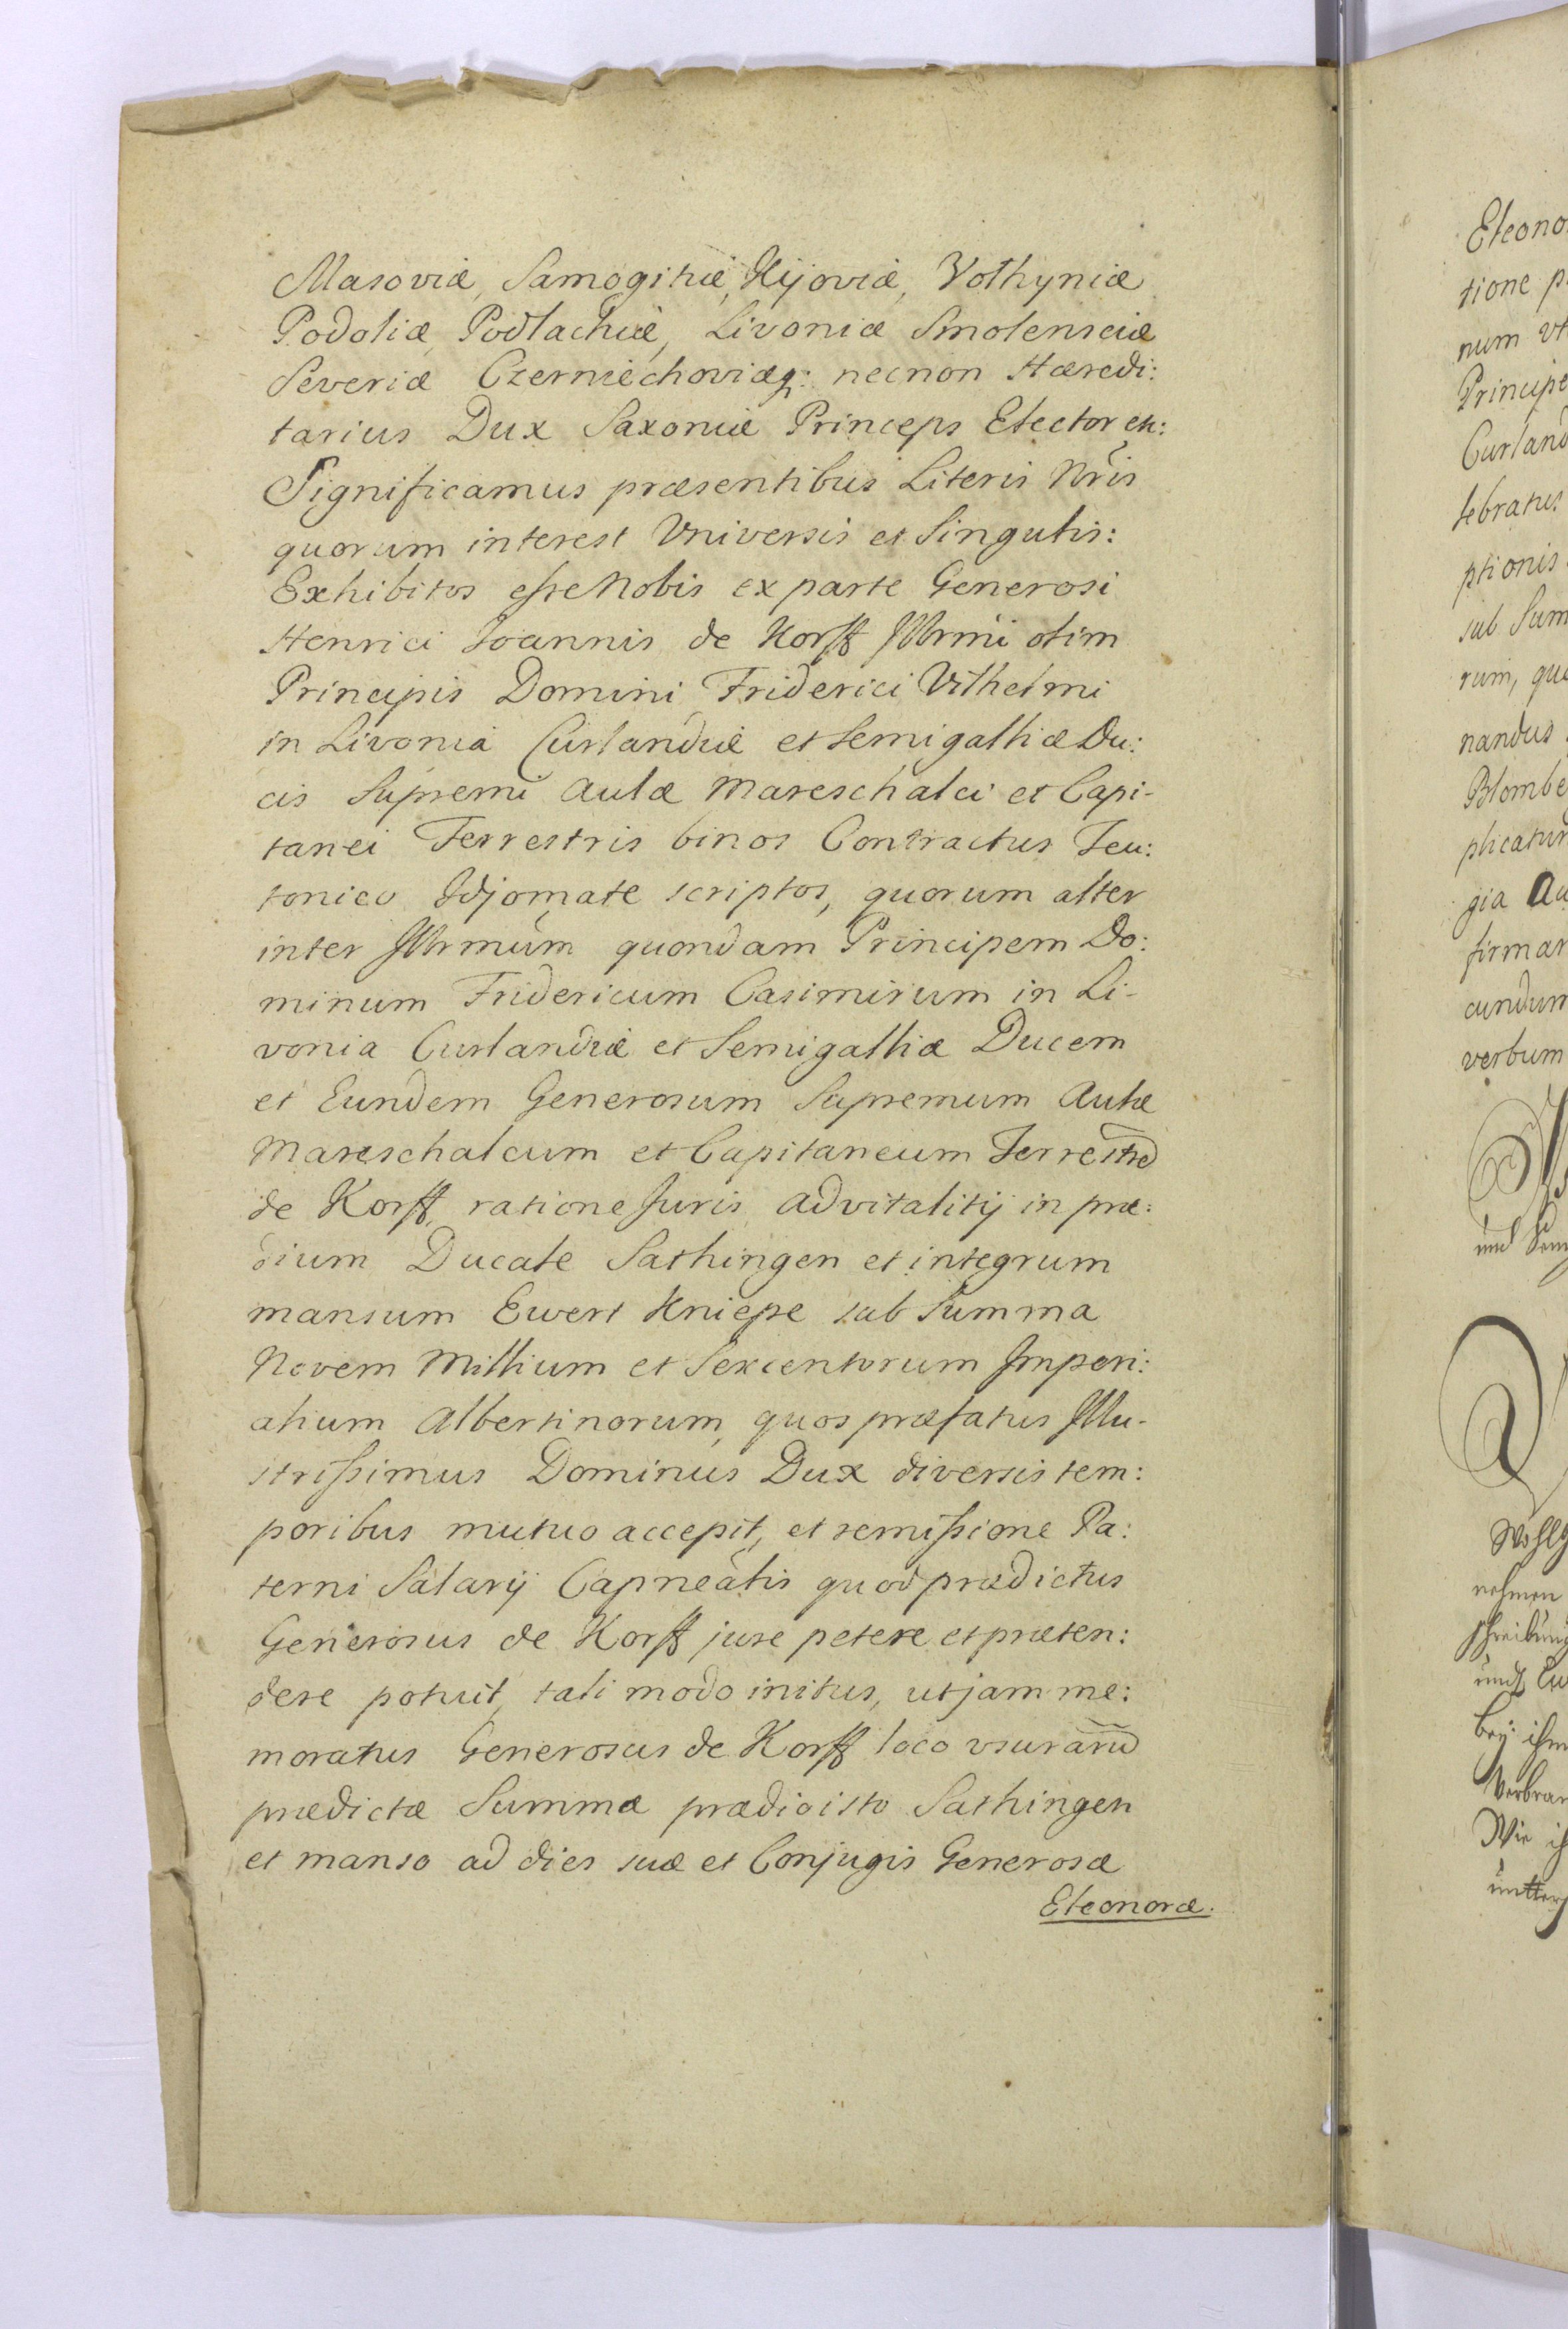 Masoviæ, Samogitiæ, Kijoviæ, Volhyniæ
Podoliæ, Podlachiæ, Livoniæ Smolensciæ
Severiæ Czerniechoviæq: necnon Hæredi:
tarius Dux Saxoniæ Princeps Elector etc:
Significamus præsentibus Literis Nris
quorum interest Vniversis et Singulis:
Exhibitos eſse Nobis ex parte Generosi
Henrici Joannis de Korff Jllrmi olim
Principis Domini Friderici Vilhelmi
in Livonia Curlandiæ et Semigalliæ Du:
cis Supremi Aulæ Mareschalci et Capi-
tanei Terrestris binos Contractus Teu:
tonico Jdjomate scriptos, quorum alter
inter Jllrmum quondam Principem Do:
minum Fridericum Casimirum in Li-
vonia Curlandiæ et Semigalliæ Ducem
et Eundem Generosum Supremum Aulæ
Mareschalcum et Capitaneum Terrestre
de Korff, ratione Juris advitalitij in præ:
dium Ducale Sathingen et integrum
mansum Ewert Kniepe sub Summa
Novem Millium et Sexcentorum Jmperi:
alium Albertinorum, quos præfatus Jllu-
striſsimus Dominus Dux diversis tem:
poribus mutuo accepit, et remiſsione Pa:
terni Salarij Capnealis quod prædictus
Generosus de Korff jure petere et præten:
dere potuit, tali modo initus, ut jam me:
moratus Generosus de Korff loco vsurarū
prædictæ Summæ prædio isto Sathingen
et manso ad dies suæ et Conjugis Generosæ
Eleonoræ.
Eleono
tione p
num vt
Principe
Curland
lebratus
ptionis
sub Sum
rum, qu
nandus
Blombe
plicatur
gia Au
firmar
cundum
verbum
und Sem
Wohlg
nehmen
schreibung
und Cu
bey ihm
Verbran
Wie ih